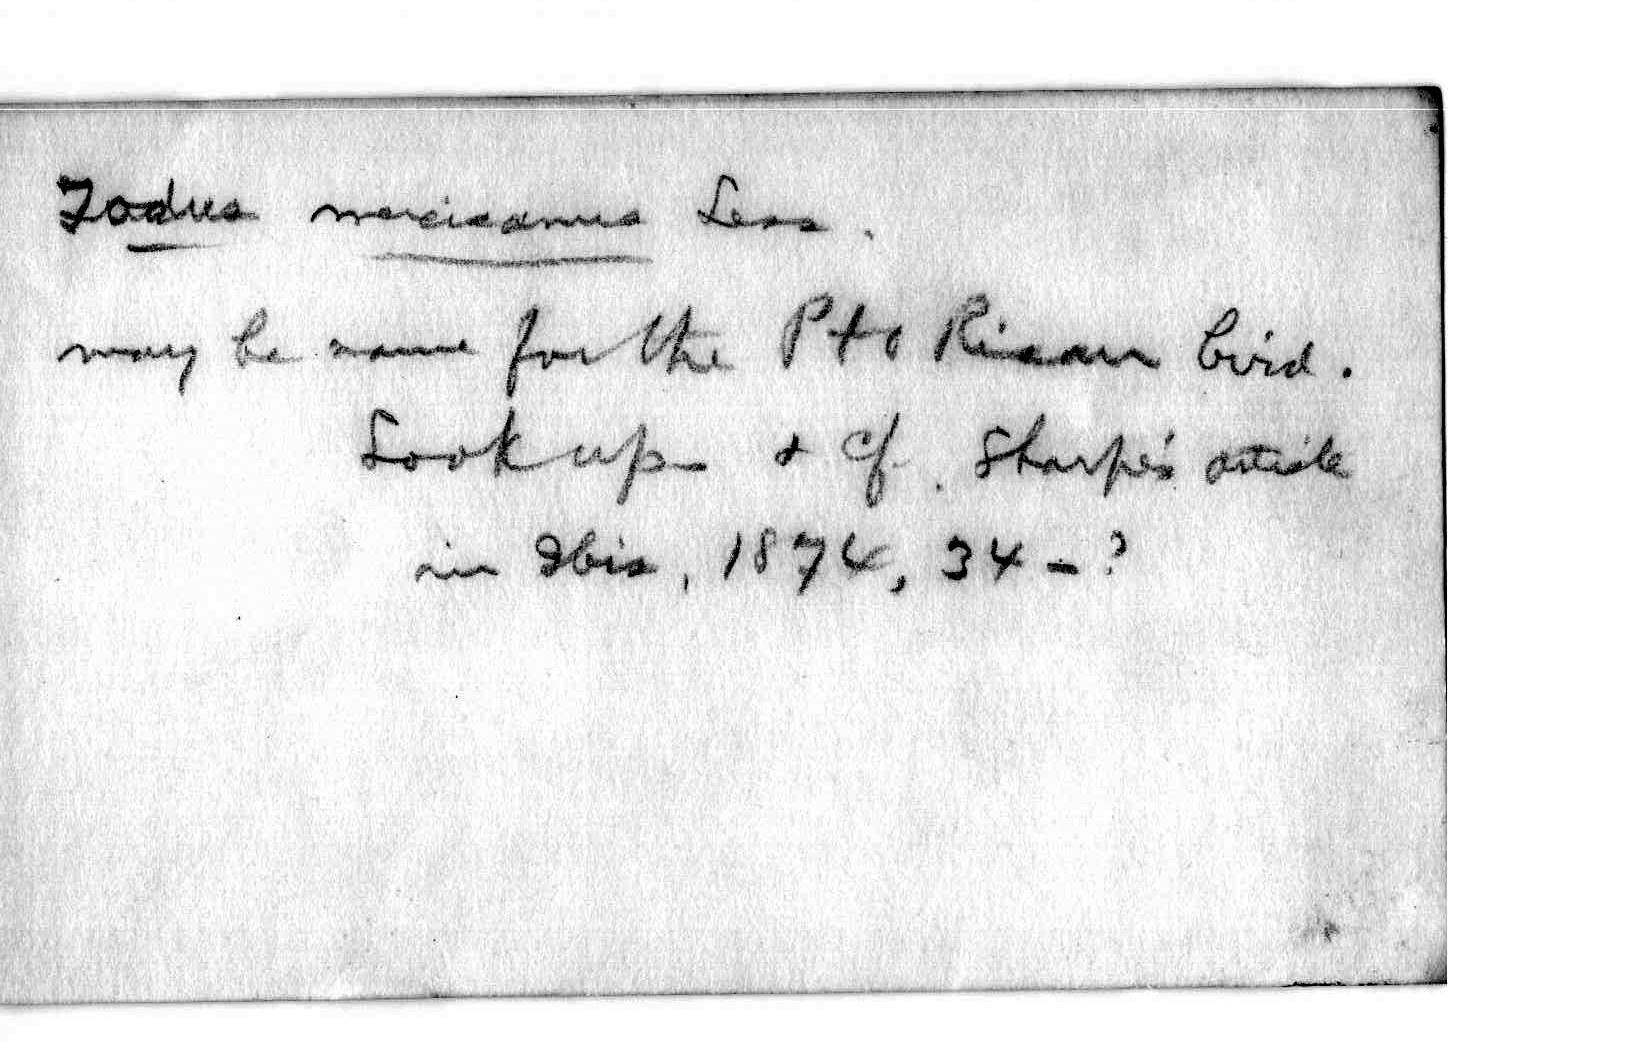 Todus mexicanus Less.
may be name for the Pto Rican bird.
Look up & cf. Sharpe's article
in Ibis, 1874, 34-?